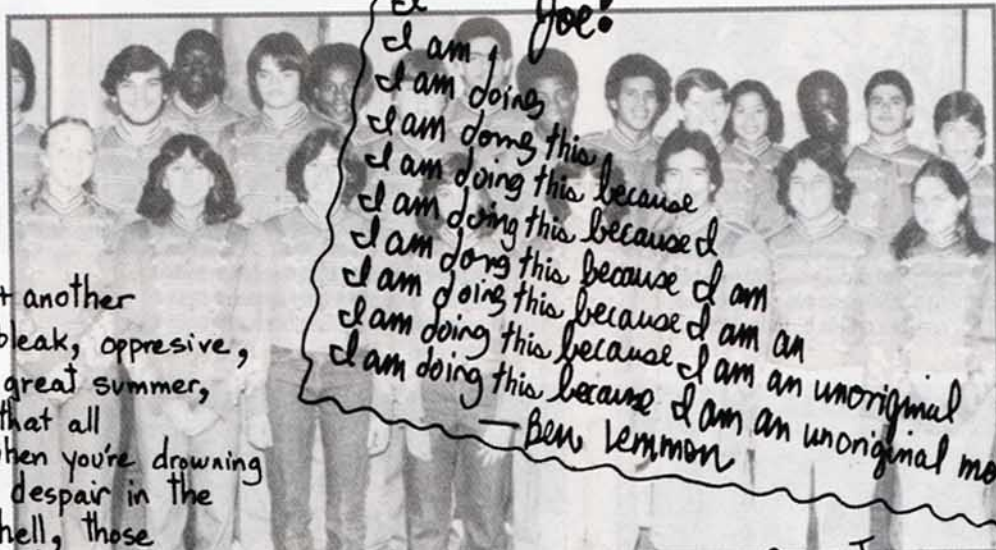 Joe!
I
I am
I am doing
I am doing this
I am doing this because
I am doing this because I
I am doing this because I am
I am doing this because I am an
I am doing this because I am an unoriginal
I am doing this because I am an unoriginal mo
— Ben Lemmon
another
bleak, oppresive,
great summer,
that all
hen you're drowning
despair in the
hell, those